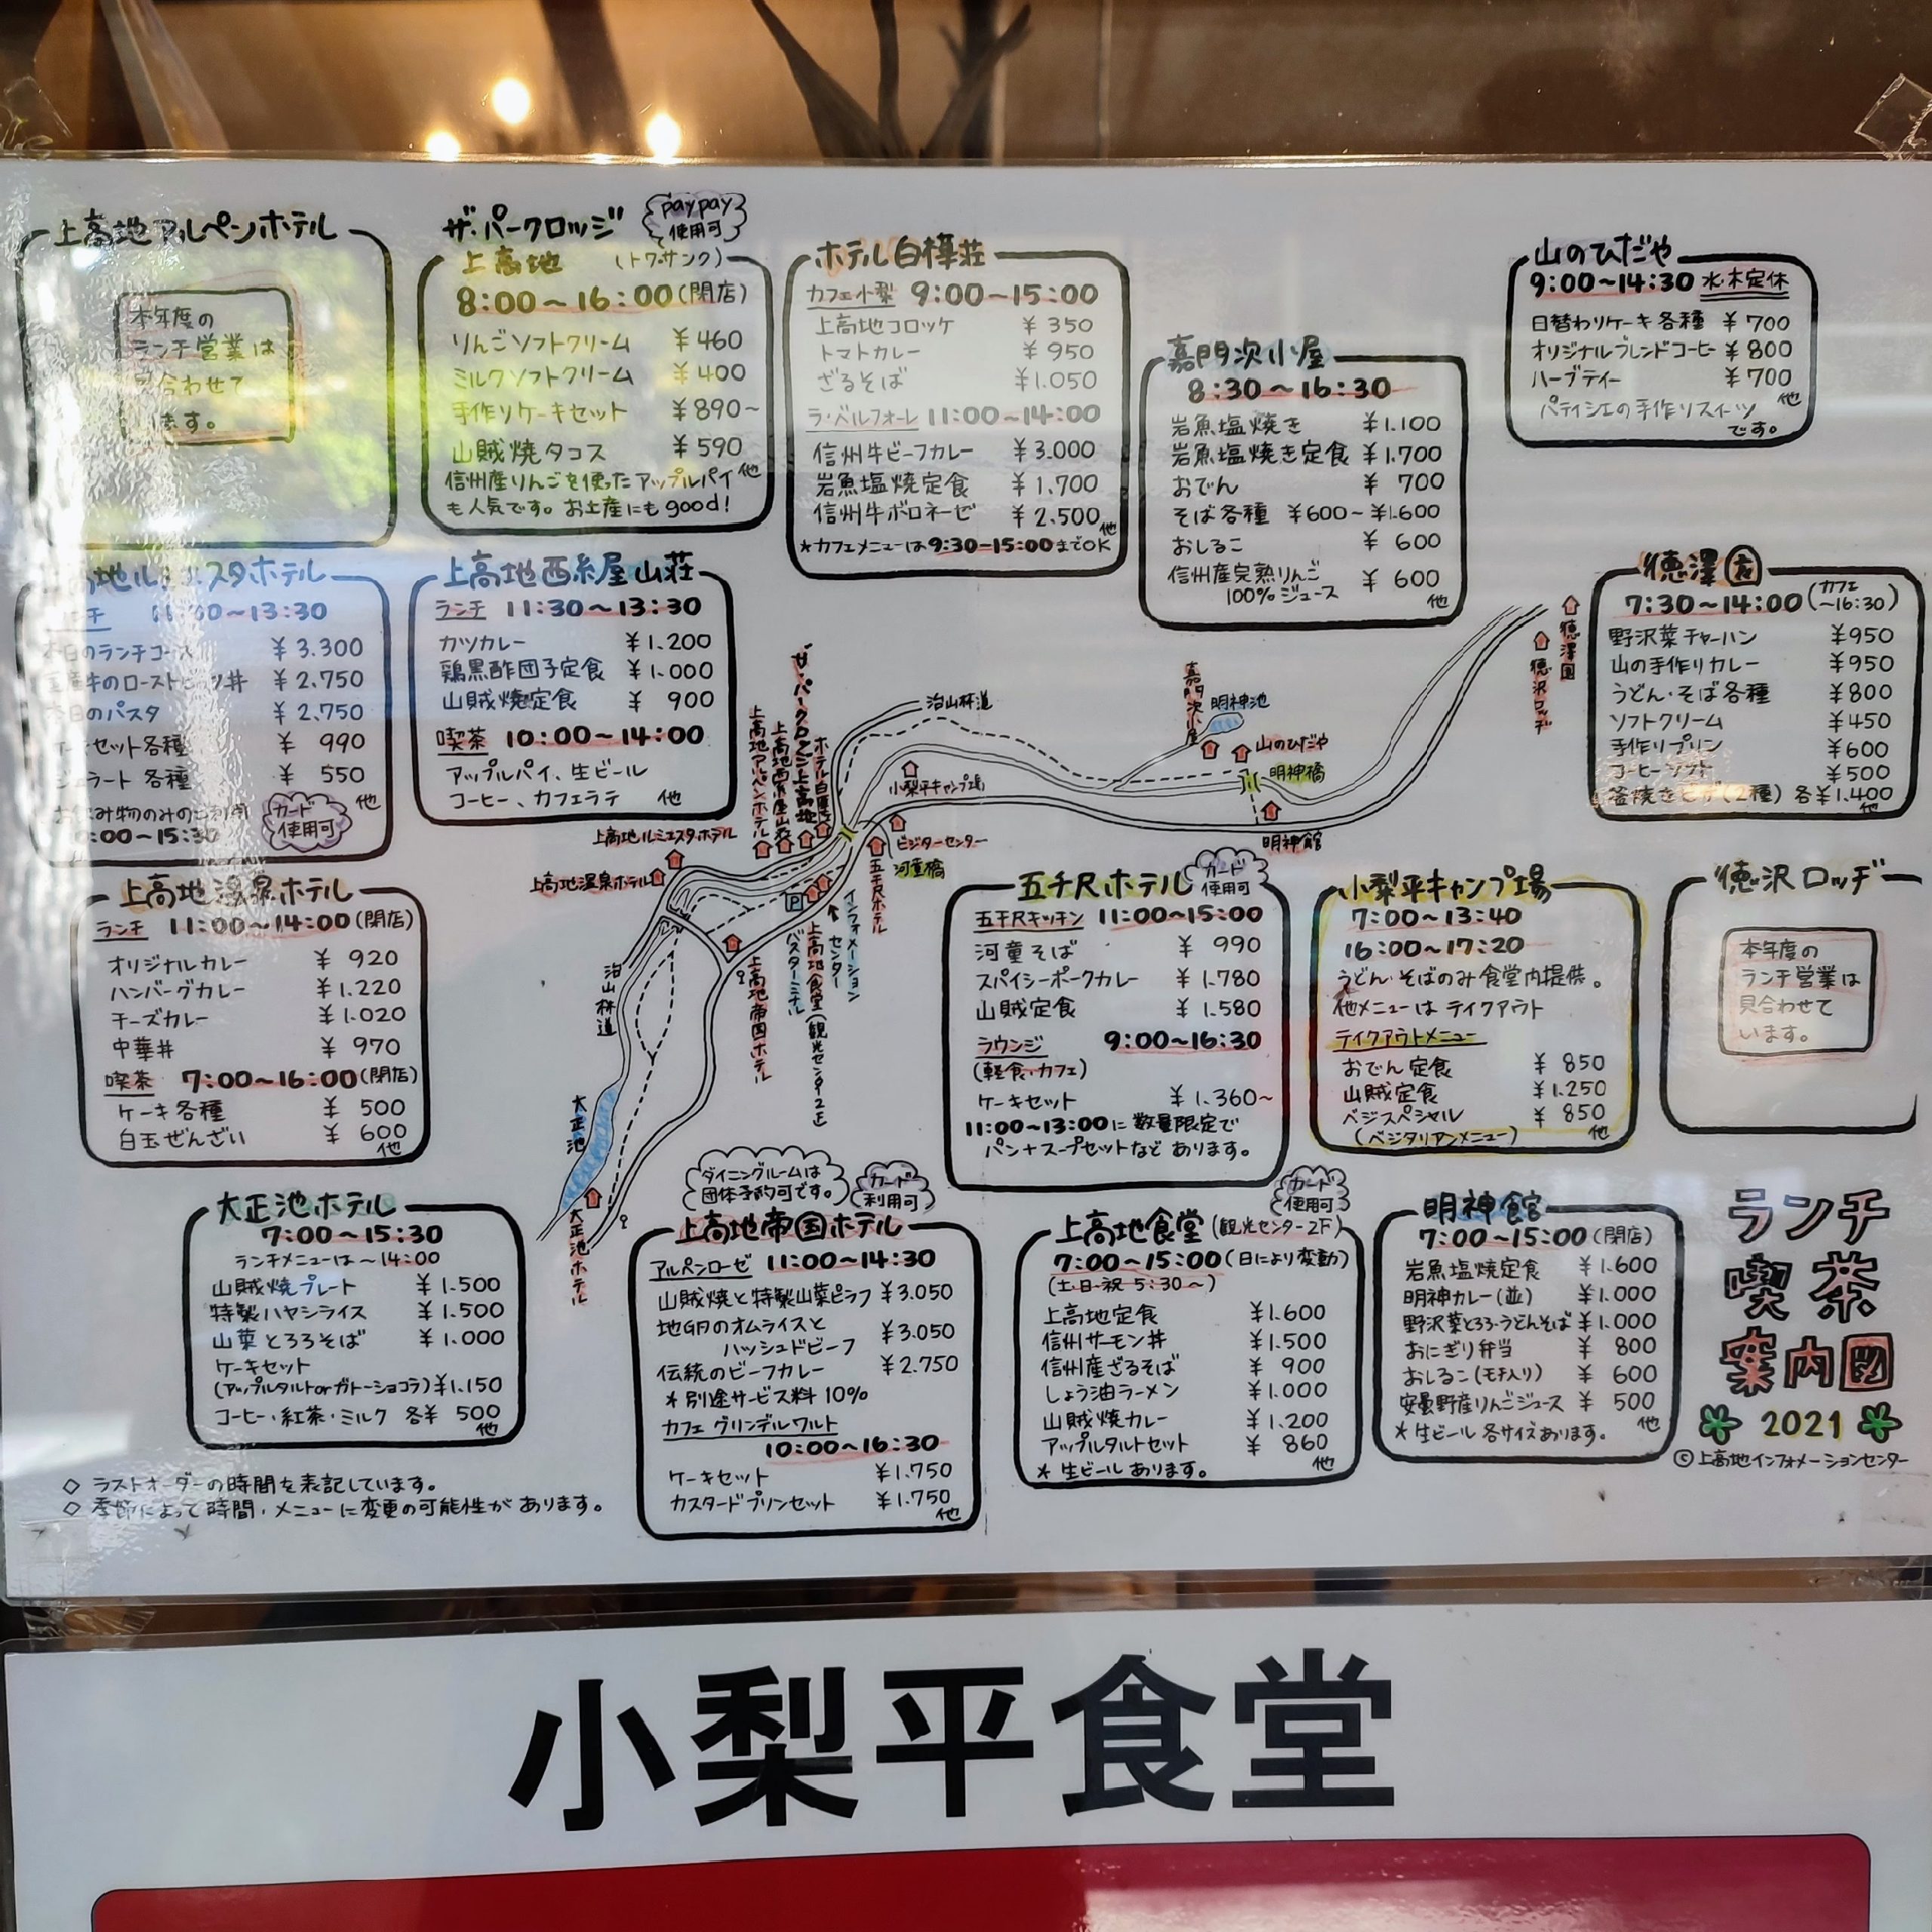 上高地アルペンホテル
本年度の
ランチ営業は
合わせて
ます。
ザ・パークロッジ
paypay
使用可
上高地 (トワ・サンク)
8:00~16:00(閉店)
りんごソフトクリーム ¥460
ミルクソフトクリーム ¥400
手作りケーキセット ¥890~
山賊焼タコス ¥590
他
信州産りんごを使ったアップルパイ
も人気です。お土産にもgood!
ホテル白樺荘
カフェ小梨 9:00~15:00
上高地コロッケ ¥350
トマトカレー ¥950
ざるそば ¥1.050
ラ・ベルフォーレ 11:00~14:00
信州牛ビーフカレー ¥3.000
岩魚塩焼定食 ¥1,700
信州牛ボロネーゼ ¥2,500
他
*カフェメニューは9:30-15:00までOK
嘉門次小屋
8:30~16:30
岩魚塩焼き ¥1.100
岩魚塩焼き定食 ¥1.700
おでん ¥700
そば各種 ¥600~¥1.600
おしるこ ¥600
信州産完熟りんご
100%ジュース ¥600
他
山のひだや
9:00~14:30 水・木定休
日替わりケーキ各種 ¥700
オリジナルブレンドコーヒー ¥800
ハーブティー ¥700
他
パティシエの手作りスイーツ
です。
スタホテル
11:00~13:30
¥3.300
¥2.750
のパスタ ¥2.750
セット各種 ¥990
ジェラート各種 ¥550
他
カード
使用可
:00~15:30
上高地西糸屋山荘
ランチ 11:30~13:30
カツカレー ¥1.200
鶏黒酢団子定食 ¥1.000
山賊焼定食 ¥900
喫茶 10:00~14:00
アップルパイ、生ビール
コーヒー、カフェラテ 他
徳澤園
7:30~14:00(カフェ~16:30)
野沢菜チャーハン ¥950
山の手作りカレー ¥950
うどん・そば各種 ¥800
ソフトクリーム ¥450
手作りプリン ¥600
コーヒーソフト ¥500
釜焼きピザ(2種) 各¥1.400
他
治山林道
嘉門次小屋
明神池
山のひだや
明神橋
明神館
徳澤園
徳沢ロッヂ
小梨平キャンプ場
ビジターセンター
河童橋
五千尺ホテル
ザ・パークロッジ上高地
ホテル白樺荘
上高地西糸屋山荘
上高地アルペンホテル
上高地ルミエスタホテル
上高地温泉ホテル
P
インフォメーション
センター
上高地食堂(観光センター2F)
バスターミナル
上高地帝国ホテル
治山林道
大正池
大正池ホテル
上高地温泉ホテル
ランチ 11:00~14:00(閉店)
オリジナルカレー ¥920
ハンバーグカレー ¥1.220
チーズカレー ¥1.020
中華丼 ¥970
喫茶 7:00~16:00(閉店)
ケーキ各種 ¥500
白玉ぜんざい ¥600
他
五千尺ホテル
カード
使用可
五千尺キッチン 11:00~15:00
河童そば ¥990
スパイシーポークカレー ¥1.780
山賊定食 ¥1.580
ラウンジ 9:00~16:30
(軽食・カフェ)
ケーキセット ¥1.360~
11:00~13:00に数量限定で
パン+スープセットなどあります。
小梨平キャンプ場
7:00~13:40
16:00~17:20
うどん・そばのみ食堂内提供。
他メニューはテイクアウト
テイクアウトメニュー
おでん定食 ¥850
山賊定食 ¥1.250
ベジスペシャル ¥850
(ベジタリアンメニュー) 他
徳沢ロッヂ
本年度の
ランチ営業は
見合わせて
います。
大正池ホテル
7:00~15:30
ランチメニューは~14:00
山賊焼プレート ¥1.500
特製ハヤシライス ¥1.500
山菜とろろそば ¥1.000
ケーキセット
(アップルタルトorガトーショコラ)¥1.150
コーヒー・紅茶・ミルク 各¥500
他
ダイニングルームは
団体予約可です。
カード
利用可
上高地帝国ホテル
アルペンローゼ 11:00~14:30
山賊焼と特製山菜ピラフ ¥3.050
地卵のオムライスと
ハッシュドビーフ ¥3.050
伝統のビーフカレー ¥2.750
*別途サービス料10%
カフェ グリンデルワルト
10:00~16:30
ケーキセット ¥1.750
カスタードプリンセット ¥1.750
他
カード
使用可
上高地食堂(観光センター2F)
7:00~15:00(日により変動)
(土・日・祝 5:30~)
上高地定食 ¥1.600
信州サーモン丼 ¥1.500
信州産ざるそば ¥900
しょう油ラーメン ¥1.000
山賊焼カレー ¥1.200
アップルタルトセット ¥860
*生ビールあります。 他
明神館
7:00~15:00(閉店)
岩魚塩焼定食 ¥1.600
明神カレー(並) ¥1.000
野沢菜とろろ・うどんそば ¥1.000
おにぎり弁当 ¥800
おしるこ(モチ入り) ¥600
安曇野産りんごジュース ¥500
*生ビール各サイズあります。 他
ランチ
喫茶
案内図
2021
©上高地インフォメーションセンター
◇ ラストオーダーの時間を表記しています。
◇ 季節によって時間・メニューに変更の可能性があります。
小梨平食堂